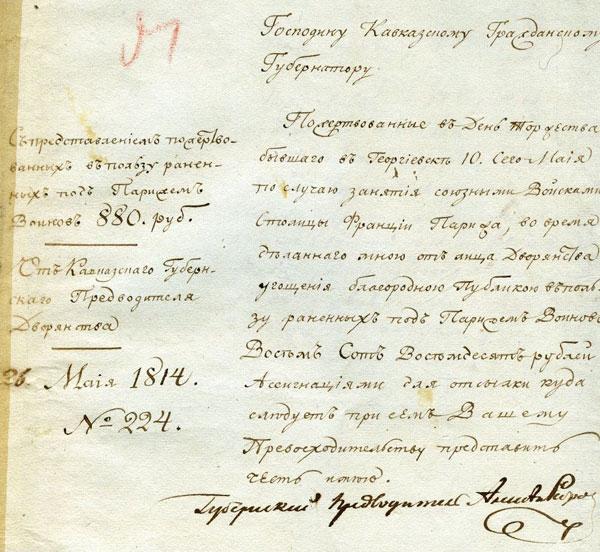 Господину Кавказскому Гражданскому
Губернатору
Съ представленіемъ пожертво-
ванныхъ въ пользу ранен-
ныхъ подъ Парижемъ
Воиновъ 880. руб.
Отъ Кавказскаго Губерн-
скаго Предводителя
Дворянства
26. Маія 1814.
№ 224.
Пожертвованные въ День торжества
бывшаго въ Георгіевскѣ 10. Сего Маія
по случаю занятія союзными Войсками
Столицы Франціи Парижа, во время
сдѣланнаго мною отъ лица Дворянства
угощенія благородною Публикою въ поль-
зу раненныхъ подъ Парижемъ Воиновъ
Восемъ Сотъ Восемдесятъ рублей
Асигнаціями для отсылки куда
слѣдуетъ при семъ Вашему
Превосходительству представить
честь имѣю.
Губернский предводитель